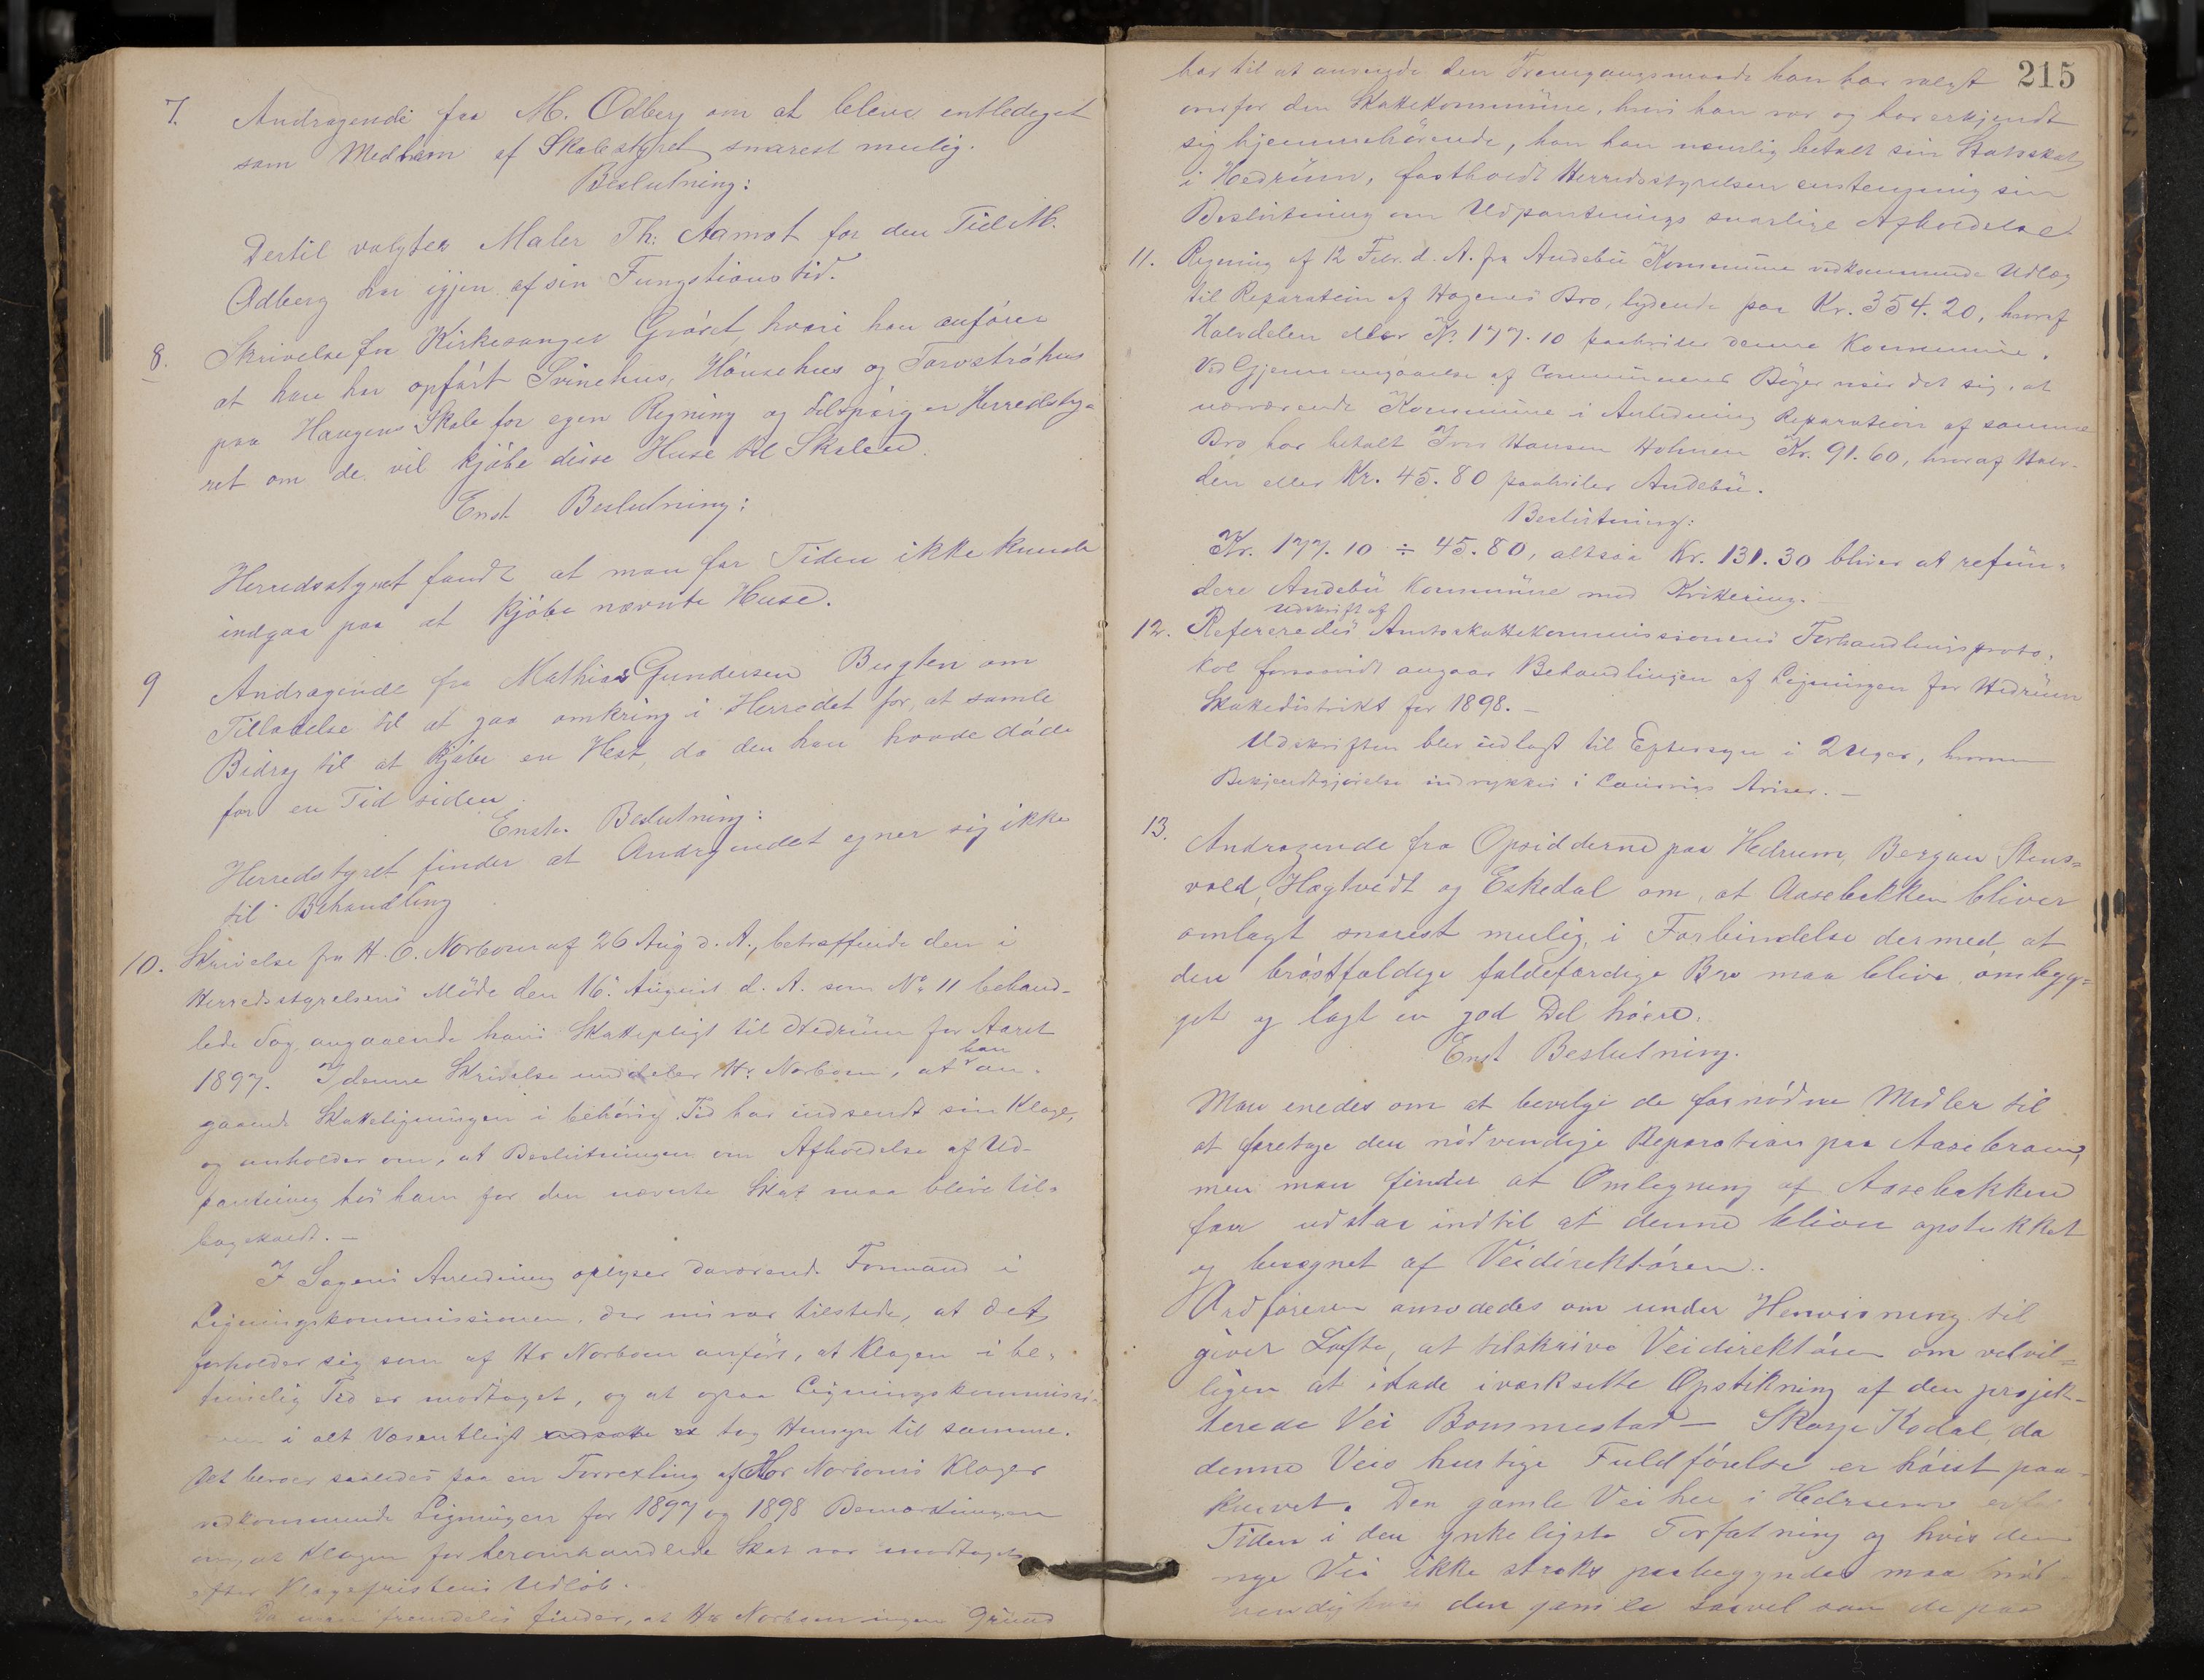 7. Andragende fra M. Odberg om at bleve entlediget
som Medlem af Skolestyret snarest mulig.
Beslutning:
Dertil valgtes Maler Th: Aamot for den Tid M.
Odberg har igjen af sin Fungstionstid.
8. Skrivelse fra Kirkesanger Gróset, hvori han anfører
at han har opført Svinehus, Hønsehus og Torvstrøhus
paa Haugens Skole for egen Regning og tilspørger Herredsty-
ret om de vil kjøbe disse Huse til Skolen.
Enst Beslutning:
Herredsstyret fandt at man for Tiden ikke kunde
indgaa paa at kjøbe nævnte Huse.
9 Andragende fra Mathias Gundersen Bugten om
Tilladelse til at gaa omkring i Herredet for, at samle
Bidrag til at kjøbe en Hest, da den han havde døde
for en Tid siden.
Enst. Beslutning:
Herredstyret finder at Andragendet egner sig ikke
til Behandling
10. Skrivelse fra H. O. Norbom af 26 Aug d. A., betræffende den i
Herredsstyrelsens Møde den 16. August d. A. som No 11 behand-
lede Sag angaaende hans Skattepligt til Hedrum for Aaret
1897. I denne Skrivelse meddeler Hr. Norbom, at han an-
gaaende Skatteligningen i behørig Tid har indsendt sin Klage,
og anholder om, at Beslutningen om Afholdelse af Ud-
pantning hos ham for den nævnte Skat maa blive til-
bageholdt. —
I Sagens Anledning oplyser daværende Formand i
Ligningskommissionen, der nu var tilstede, at det
forholder sig som af Hr Norbom anført, at Klagen i be-
timelig Tid er modtaget, og at ogsaa Ligningskommissi-
onen i alt Væsentligt tog Hensyn til samme.
Det beroer saaledes paa en Forvexling af Hr Norboms Klager
vedkommende Ligningen for 1897 og 1898 Bemærkningen
om, at Klagen for beromhandlede Skat var modtaget
efter Klagefristens Udløb.
Da man fremdeles finder, at Hr Norbom ingen Grund
215
har til at anvende den Fremgangsmaade han har valgt
overfor den Skattekommune, hvori han var og har erkjendt
sig hjemmehørende, han har nemlig betalt sin Statsskat
i Hedrum, fastholdt Herredsstyrelsen enstemmig sin
Beslutning om Udpantnings snarlige Afholdelse.
11. Regning af 12 Febr. d. A. fra Andebu Kommune vedkommende Udlæg
til Reparation af Hagenes Bro, lydende paa Kr. 354.20, hvoraf
Halvdelen eller Kr 177.10 paahviler denne Kommune.
Ved Gjennemgaaelse af Communens Bøger viser det sig, at
nærværende Kommune i Anledning Reparation af samme
Bro har betalt Iver Hansen Holmen Kr. 91.60, hvoraf Halv-
den eller Kr. 45.80 paahviler Andebu.
Beslutning:
Kr. 177.10 ÷ 45.80, altsaa Kr. 131.30 bliver at refun-
dere Andebu Kommune mod Kvittering.
12. Refereredes Udskrift af Amtsskattekommissionens Forhandlingsproto-
kol forsaavidt angaar Behandlingen af Ligningen for Hedrum
Skattedistrikt for 1898. —
Udskriften blev udlagt til Eftersyn i 2 Uger, hvorom
Bekjendtgjørelse indrykkes i Laurvigs Aviser. —
13. Andragende fra Opsidderne paa Hedrum, Bergan Stens-
vold, Hagtvedt og Eskedal om, at Aasebakken bliver
omlagt snarest mulig, i Forbindelse dermed, at
den brøstfældige faldefærdige Bro maa blive ombyg-
get og lagt en god Del høiere.
Enst Beslutning.
Man enedes om at bevilge de fornødne Midler til
at foretage den nødvendige Reparation paa Aasebroen,
men man finder at Omlegning af Aasebakken
faar udstaa indtil at denne bliver opstukket
og beregnet af Veidirektøren.
Ordføreren anmodedes om under Henvisning til
givet Løfte, at tilskrive Veidirektøren om velvil-
ligen at ilade iværksette Opstikning af den projek-
terede Vei Bommestad — Skorge Kodal, da
denne Veis hurtige Fuldførelse er høist paa-
krævet. Den gamle Vei her i Hedrum er for
Tiden i den ynkeligste Forfatning og hvis den
nye Vei ikke straks paabegyndes maa nød-
vendigvis den gamle saavel som de paa